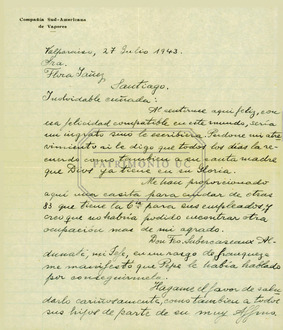 Compañía Sud-Americana
de Vapores
Valparaiso, 27 Julio 1943.
Sra.
Flora Yáñez
Santiago.
Inolvidable cuñada:
Al sentirse aquí feliz, con
esa felicidad compatible en este mundo, sería
un ingrato sino le escribiera. Perdone mi atre
vimiento si le digo que todos los días la re-
cuerdo como también a su santa madre
que Dios ya tiene en su Gloria.
PATRIMONIO UC
Me han proporcionado
aquí una casita para cuidar de otras
83 que tiene la Cía para sus empleados y
creo que no habría podido encontrar otra
ocupación mas de mi agrado.
Don Fco. Subercaseaux Al-
dunate, mi Jefe, en un rasgo de franqueza
me manifestó que Pepe le había hablado
por conseguírmela.
Hágame el favor de salu
darlo cariñosamente, como también a todos
sus hijos de parte de su muy Affmo.